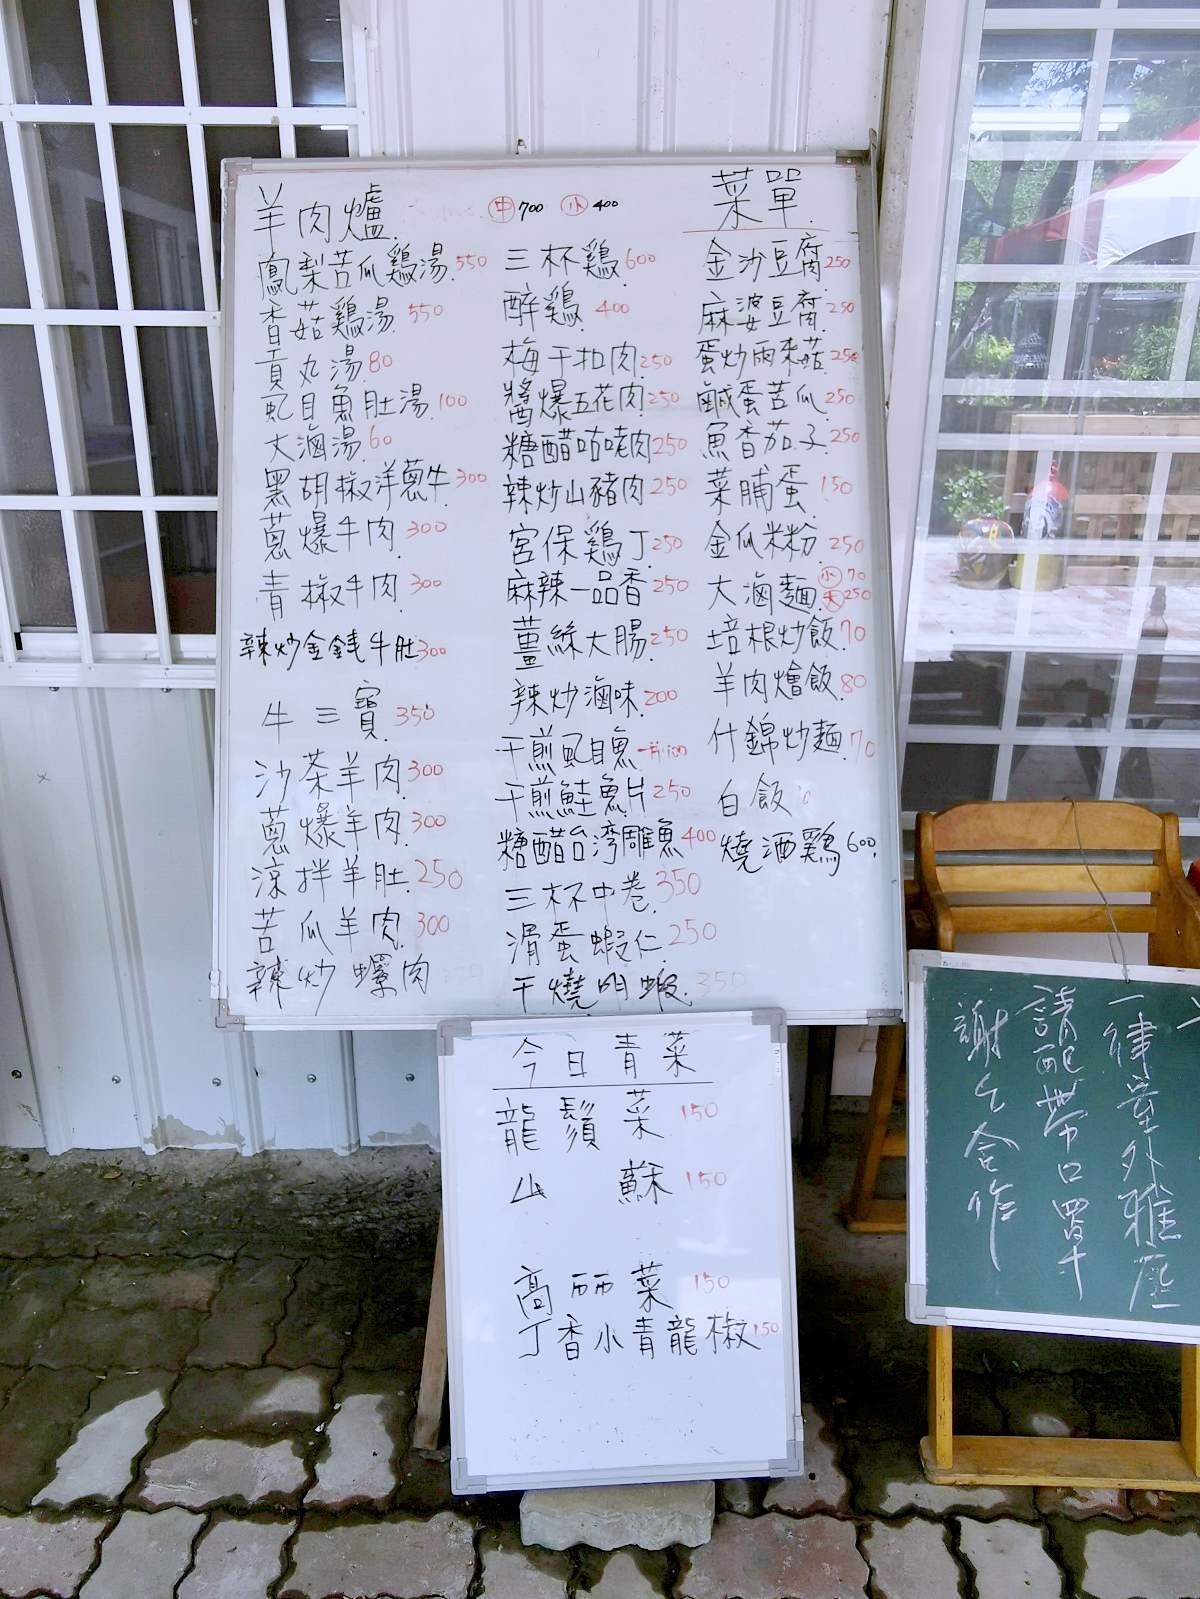 菜單
金沙豆腐 250
麻婆豆腐 250
蛋炒雨來菇 250
鹹蛋苦瓜 250
魚香茄子 250
菜脯蛋 150
金瓜米粉 250
大滷麵 小70 大250
培根炒飯 70
羊肉燴飯 80
什錦炒麵 70
白飯
燒酒鷄 600
羊肉爐 中700 小400
三杯鷄 600
醉鷄 400
梅干扣肉 250
醬爆五花肉 250
糖醋咕咾肉 250
辣炒山豬肉 250
宮保鷄丁 250
麻辣一品香 250
薑絲大腸 250
辣炒滷味 200
干煎虱目魚
干煎鮭魚片 250
糖醋台湾雕魚 400
三杯中卷 350
滑蛋蝦仁 250
干燒明蝦 350
鳳梨苦瓜鷄湯 550
香菇鷄湯 550
貢丸湯 80
虱目魚肚湯 100
大滷湯 60
黑胡椒洋蔥牛 300
蔥爆牛肉 300
青椒牛肉 300
辣炒金錢牛肚 300
牛三寶 350
沙茶羊肉 300
蔥爆羊肉 300
涼拌羊肚 250
苦瓜羊肉 300
辣炒螺肉
今日青菜
龍鬚菜 150
山蘇 150
高丽菜 150
丁香小青龍椒 150
一律室外雅座
請配帶口罩
謝々合作